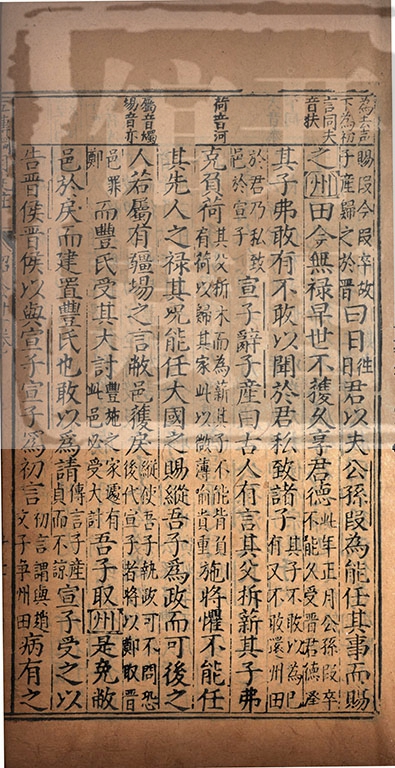 為去聲
下為初
言同夫
音扶
荷音河
屬音燭
場音亦
賜叚今叚卒故子產歸之於晉曰日往日君以夫公孫叚為能任其事而賜
之州田今無禄早世不獲久享君德此年正月公孫叚卒不能久受晉君德澤
其子弗敢有不敢以聞於君私致諸子其子不敢以為已有又不敢還州田
於君乃私致邑於宣子宣子辭子產曰古人有言其父析薪其子弗
克負荷其父析木而為薪其子不能背負有荷以歸其家此以微薄喻貴重施將懼不能任
其先人之禄其况能任大國之賜縱吾子為政而可後之
人若屬有疆場之言敝邑獲戾縱使吾子執政可不問恐後代宣子者將以鄭取晉
邑罪鄭而豐氏受其大討豐施之家遽有此邑必受大討吾子取州是免敝
邑於戾而建置豐氏也敢以為請傳言子產貞而不諒宣子受之以
告晉侯晉侯以與宣子宣子為初言初言謂與趙文子爭州田病有之